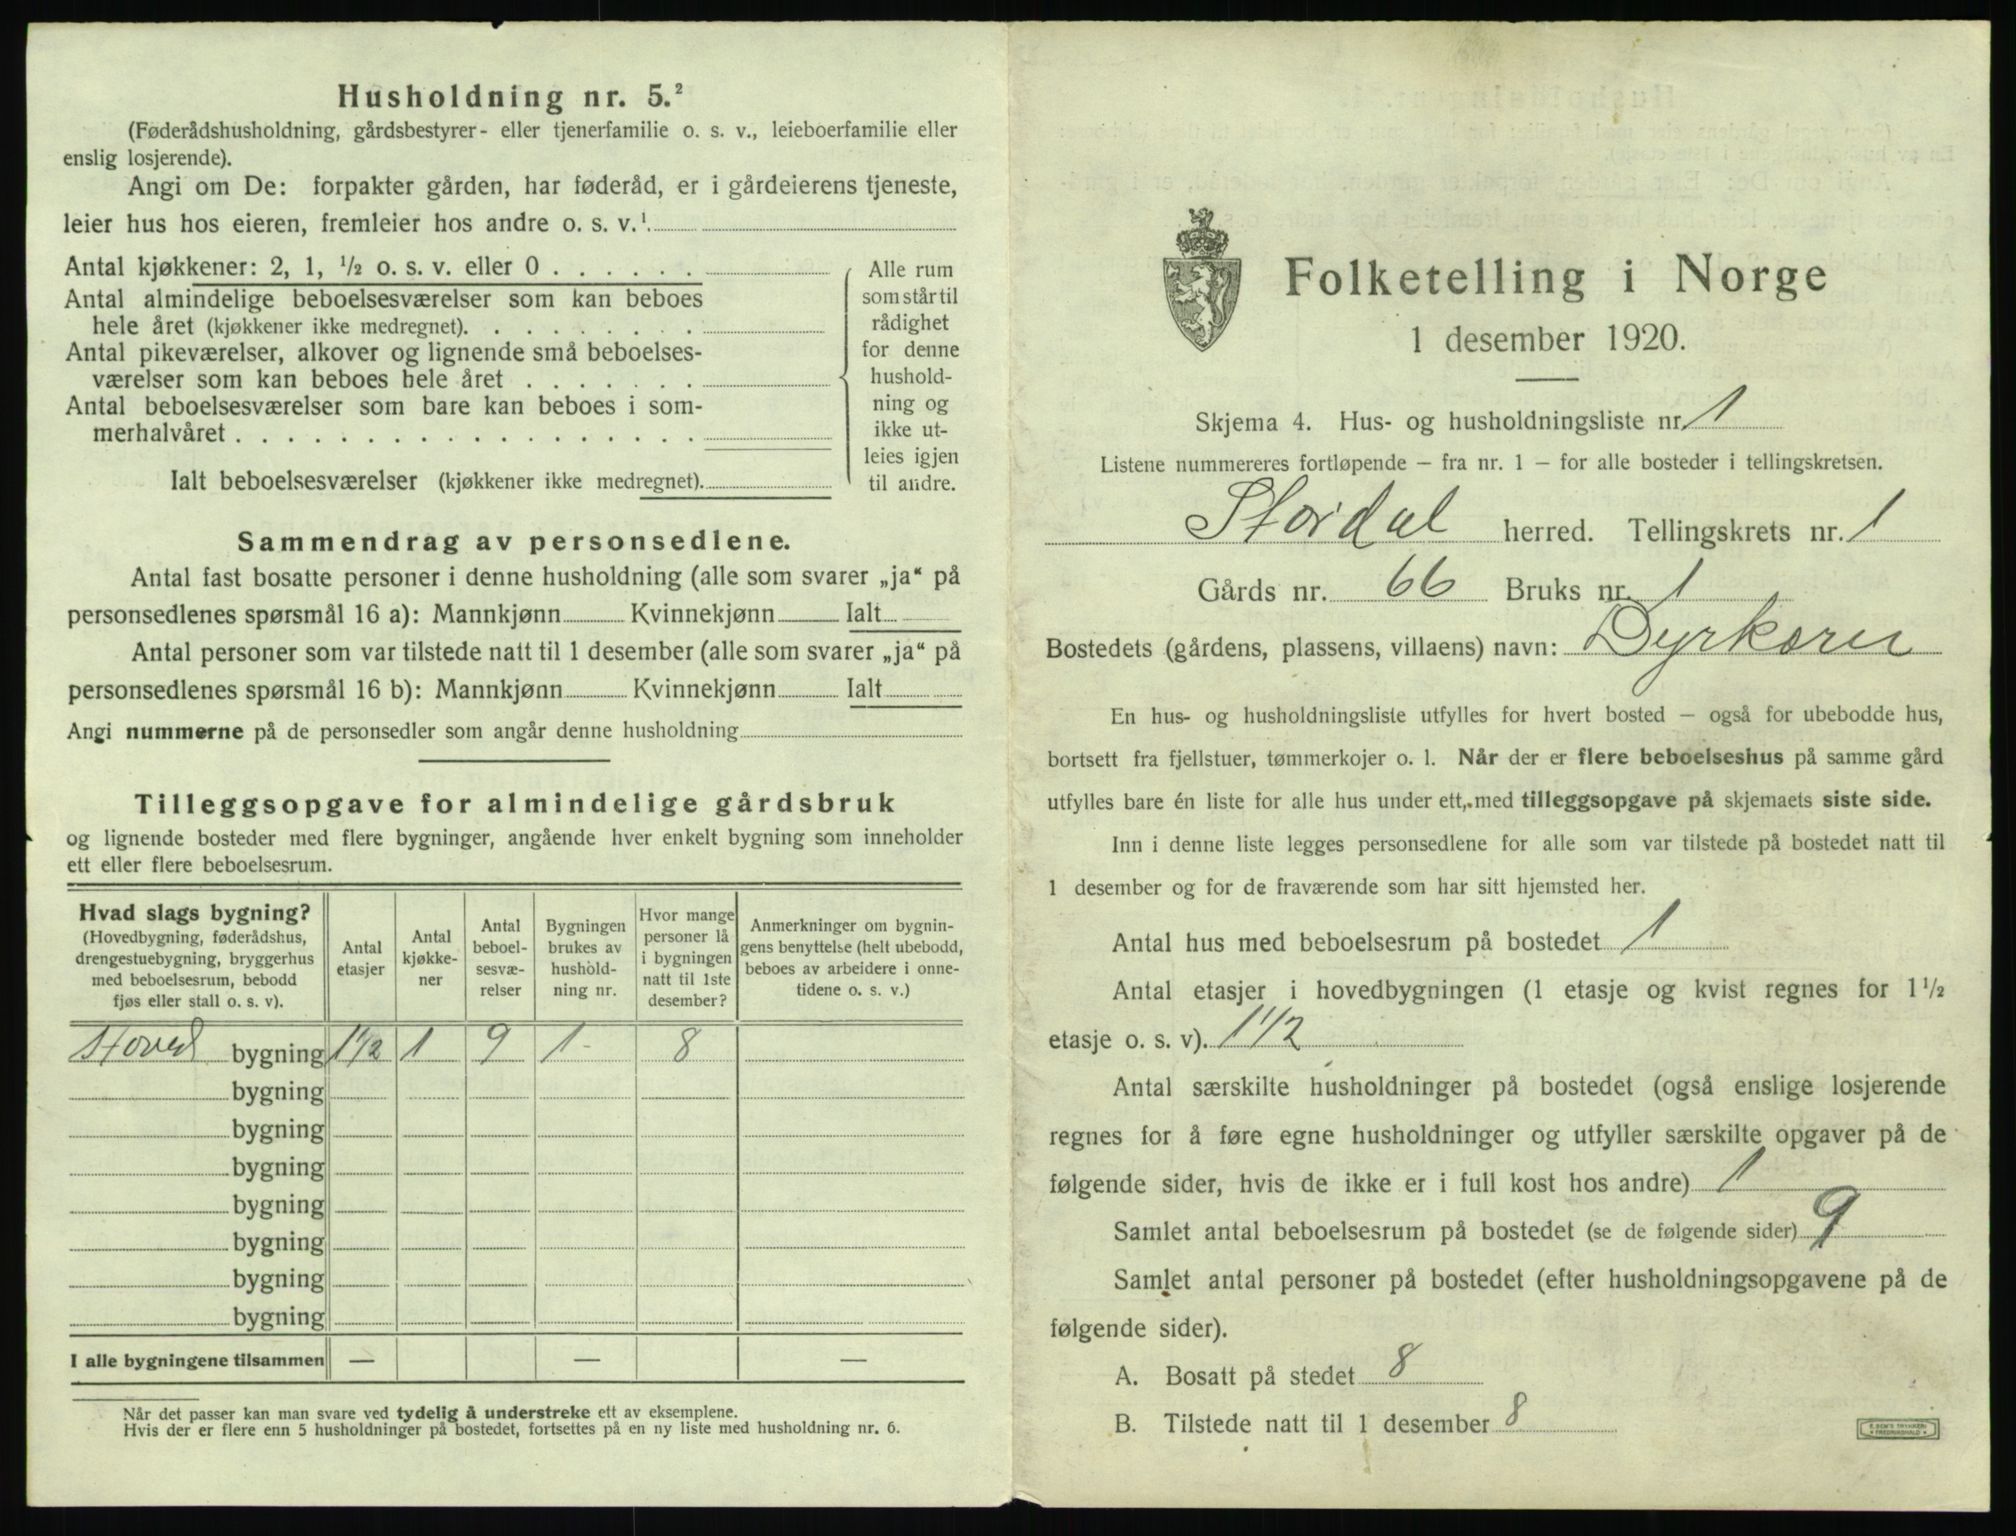 Husholdning nr. 5.²
(Føderådshusholdning, gårdsbestyrer- eller tjenerfamilie o. s. v., leieboerfamilie eller
enslig losjerende).
Angi om De: forpakter gården, har føderåd, er i gårdeierens tjeneste,
leier hus hos eieren, fremleier hos andre o. s. v.¹
Antal kjøkkener: 2, 1, ½ o. s. v. eller 0 . . . . . .
Antal almindelige beboelsesværelser som kan beboes
hele året (kjøkkener ikke medregnet). . . . . . . . .
Antal pikeværelser, alkover og lignende små beboelses-
værelser som kan beboes hele året . . . . . . .
Antal beboelsesværelser som bare kan beboes i som-
merhalvåret . . . . . . . . . . . . . . . . . .
Ialt beboelsesværelser (kjøkkener ikke medregnet).
Alle rum
som står til
rådighet
for denne
hushold-
ning og
ikke ut-
leies igjen
til andre.
Sammendrag av personsedlene.
Antal fast bosatte personer i denne husholdning (alle som svarer „ja“ på
personsedlenes spørsmål 16 a): Mannkjønn Kvinnekjønn Ialt
Antal personer som var tilstede natt til 1 desember (alle som svarer „ja“ på
personsedlenes spørsmål 16 b): Mannkjønn Kvinnekjønn Ialt
Angi nummerne på de personsedler som angår denne husholdning
Tilleggsopgave for almindelige gårdsbruk
og lignende bosteder med flere bygninger, angående hver enkelt bygning som inneholder
ett eller flere beboelsesrum.
Hvad slags bygning?
(Hovedbygning, føderådshus,
drengestuebygning, bryggerhus
med beboelsesrum, bebodd
fjøs eller stall o. s. v).
Antal
etasjer
Antal
kjøkke-
ner
Antal
beboel-
sesvæ-
relser
Bygningen
brukes av
hushold-
ning nr.
Hvor mange
personer lå
i bygningen
natt til 1ste
desember?
Anmerkninger om bygnin-
gens benyttelse (helt ubebodd,
beboes av arbeidere i onne-
tidene o. s. v.)
Hoved bygning 1½ 1 9 1 8
bygning
bygning
bygning
bygning
bygning
bygning
bygning
I alle bygningene tilsammen — — —
Når det passer kan man svare ved tydelig å understreke ett av eksemplene.
Hvis der er flere enn 5 husholdninger på bostedet, fortsettes på en ny liste med husholdning nr. 6.
Folketelling i Norge
1 desember 1920.
Skjema 4. Hus- og husholdningsliste nr. 1
Listene nummereres fortløpende – fra nr. 1 – for alle bosteder i tellingskretsen.
Stordal herred. Tellingskrets nr. 1
Gårds nr. 66 Bruks nr. 1
Bostedets (gårdens, plassens, villaens) navn: Dyrkorn
En hus- og husholdningsliste utfylles for hvert bosted – også for ubebodde hus,
bortsett fra fjellstuer, tømmerkojer o. l. Når der er flere beboelseshus på samme gård
utfylles bare én liste for alle hus under ett, med tilleggsopgave på skjemaets siste side.
Inn i denne liste legges personsedlene for alle som var tilstede på bostedet natt til
1 desember og for de fraværende som har sitt hjemsted her.
Antal hus med beboelsesrum på bostedet 1
Antal etasjer i hovedbygningen (1 etasje og kvist regnes for 1½
etasje o. s. v). 1½
Antal særskilte husholdninger på bostedet (også enslige losjerende
regnes for å føre egne husholdninger og utfyller særskilte opgaver på de
følgende sider, hvis de ikke er i full kost hos andre) 1
Samlet antal beboelsesrum på bostedet (se de følgende sider) 9
Samlet antal personer på bostedet (efter husholdningsopgavene på de
følgende sider).
A. Bosatt på stedet 8
B. Tilstede natt til 1 desember 8